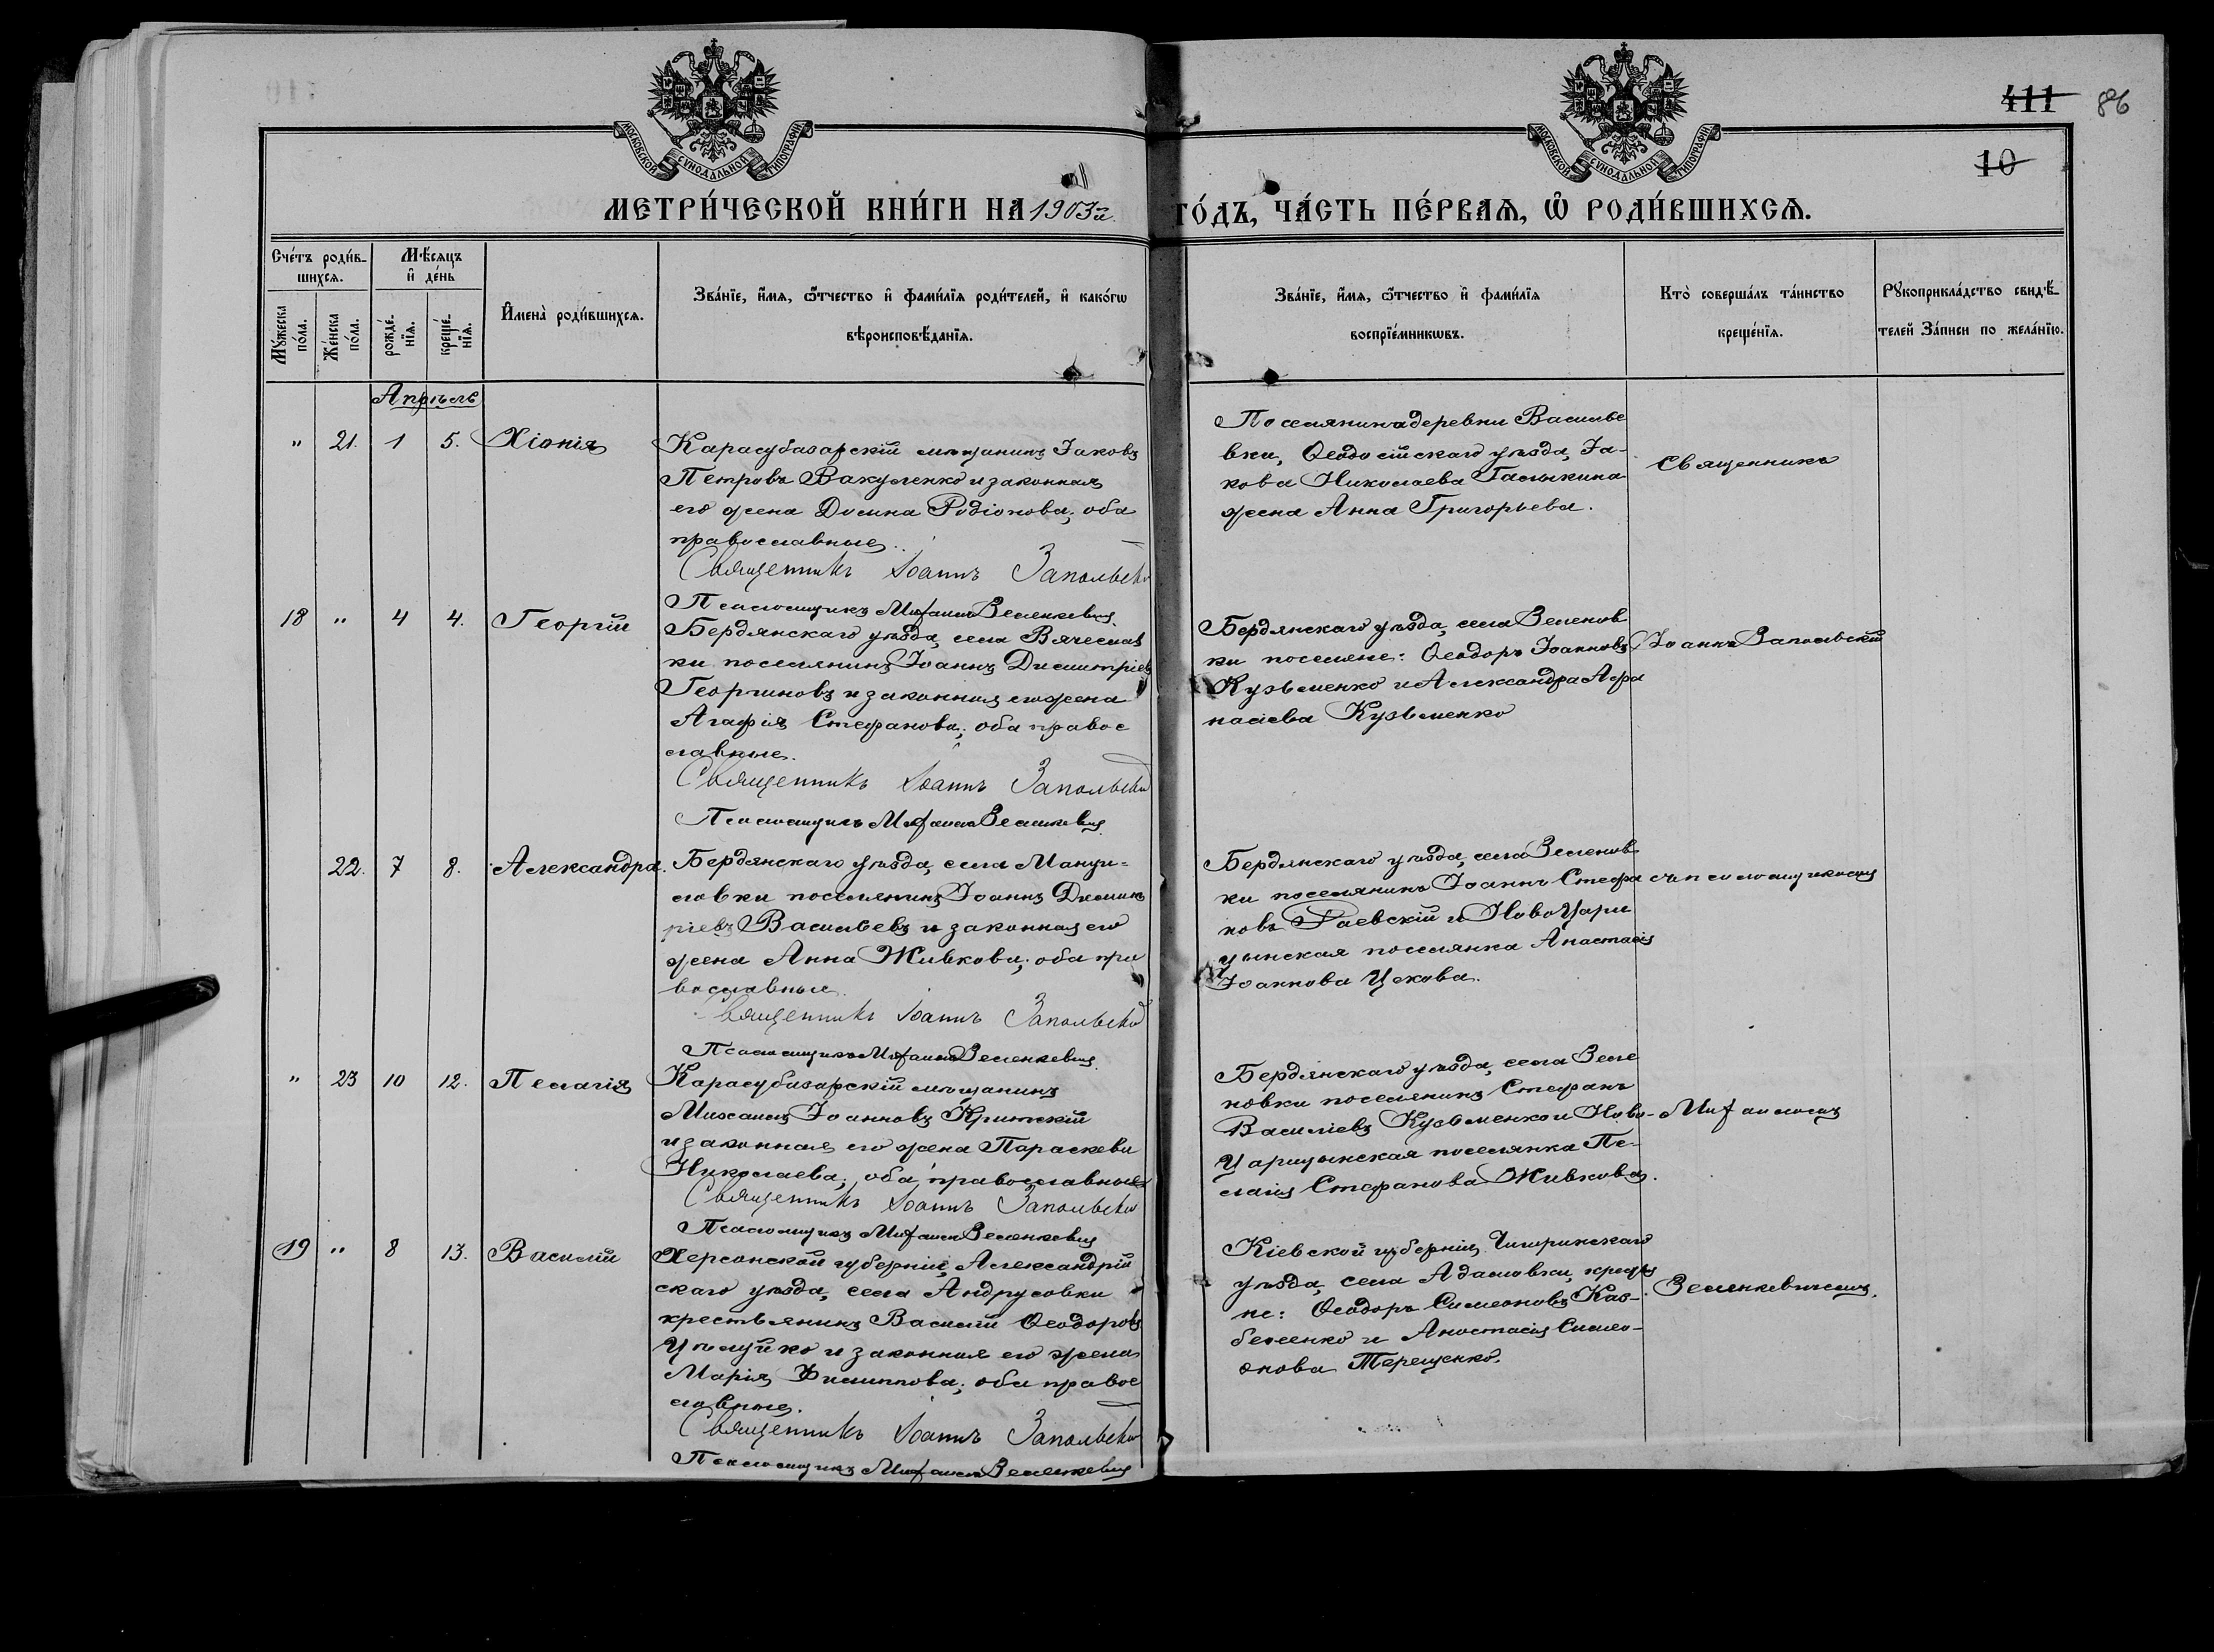 МОСКОВСКОЙ СѴНОДАЛЬНОЙ ТИПОГРАФІИ
МОСКОВСКОЙ СѴНОДАЛЬНОЙ ТИПОГРАФІИ
411 86
10
МЕТРИ́ЧЕСКОЙ КНИ́ГИ НА 1903й ГО́ДЪ, ЧА́СТЬ ПЕ́РВАѦ, Ѡ҆ РОДИ́ВШИХСѦ.
Сче́тъ роди́в-
шихсѧ.
Мѹ́жеска
по́ла.
Же́нска
по́ла.
Мѣ́сѧцъ
и҆ де́нь
рожде́-
нїѧ.
креще́-
нїѧ.
И҆мена̀ роди́вшихсѧ.
Зва́нїе, и҆́мѧ, ѻ҆́тчество и҆ фами́лїѧ роди́телей, и҆ како́гѡ
вѣроисповѣ́данїѧ.
Зва́нїе, и҆́мѧ, ѻ҆́тчество и҆ фами́лїѧ
воспрїе́мникѡвъ.
Кто̀ соверша́лъ та́инство
креще́нїѧ.
Рѹкоприкла́дство свидѣ́-
телей За́писи по жела́нїю.
Апрѣль
" 21. 1 5. Хіонія
Карасубазарскій мѣщанинъ Іаковъ
Петровъ Вакуленко и законная
его жена Домна Родіонова; оба
православные.
Священникъ Іоаннъ Запольскій
Псаломщикъ Михаилъ Зеленкевичъ
Поселянина деревни Василье
вки, Ѳеодосійскаго уѣзда, Іа-
кова Николаева Галыкина
жена Анна Григорьева.
Священникъ
18 " 4 4. Георгій
Бердянскаго уѣзда, села Вячеслав
ки поселянинъ Іоаннъ Димитріевъ
Георгиновъ и законная его жена
Агафія Стефанова; оба правос
лавные.
Священникъ Іоаннъ Запольскій
Псаломщикъ Михаилъ Зеленкевичъ
Бердянскаго уѣзда, села Зеленов
ки поселяне: Ѳеодоръ Іоанновъ
Кузьменко и Александра Афа
насіева Кузьменко
Іоаннъ Запольскій
22. 7 8. Александра.
Бердянскаго уѣзда, села Мануй-
ловки поселянинъ Іоаннъ Димит
ріевъ Васильевъ и законная его
жена Анна Живкова; оба пра
вославные.
Священникъ Іоаннъ Запольскій
Псаломщикъ Михаилъ Зеленкевичъ
Бердянскаго уѣзда, села Зеленов
ки поселянинъ Іоаннъ Стефа
новъ Раевскій и НовоЦари
цынская поселянка Анастасія
Іоаннова Цекова.
съ псаломщикомъ
" 23 10 12. Пелагія
Карасубазарскій мѣщанинъ
Михаилъ Іоанновъ Критскій
и законная его жена Параскева
Николаева; оба православные
Священникъ Іоаннъ Запольскій
Псаломщикъ Михаилъ Зеленкевичъ
Бердянскаго уѣзда, села Зеле
новки поселянинъ Стефанъ
Василіевъ Кузьменко и Ново-
Царицынская поселянка Пе-
лагія Стефанова Живкова.
Михаиломъ
19 " 8 13. Василій
Херсонской губерніи, Александрій
скаго уѣзда, села Андрусовки
крестьянинъ Василій Ѳеодоровъ
и законная его жена
Марія Филиппова; оба правос
лавные.
Священникъ Іоаннъ Запольскій
Псаломщикъ Михаилъ Зеленкевичъ
Кіевской губерніи, Чигиринскаго
уѣзда, села Адамовки, крестья
не: Ѳеодоръ Симеоновъ Кас-
беленко и Анастасія Симео-
онова Терещенко.
Зеленкевичемъ.